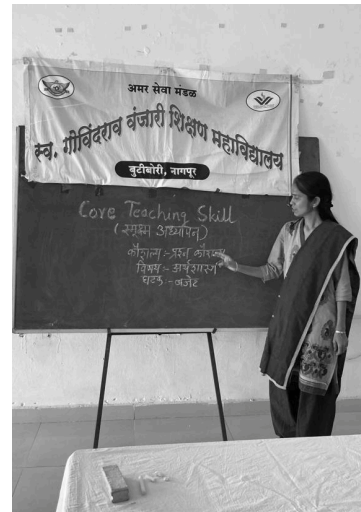 अमर सेवा मंडळ
स्व. गोविंदराव वंजारी शिक्षण महाविद्यालय
बुटीबोरी, नागपुर
Core Teaching Skill
(सूक्ष्म अध्यापन)
कौशल्य :- प्रश्न कौशल्य
विषय :- अर्थशास्त्र
घटक :- बजेट